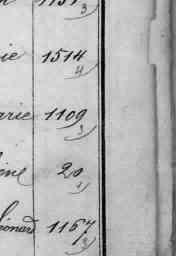 3
ie 1514
4
arie 1109
3
ine 20
1
éonard 1157
3